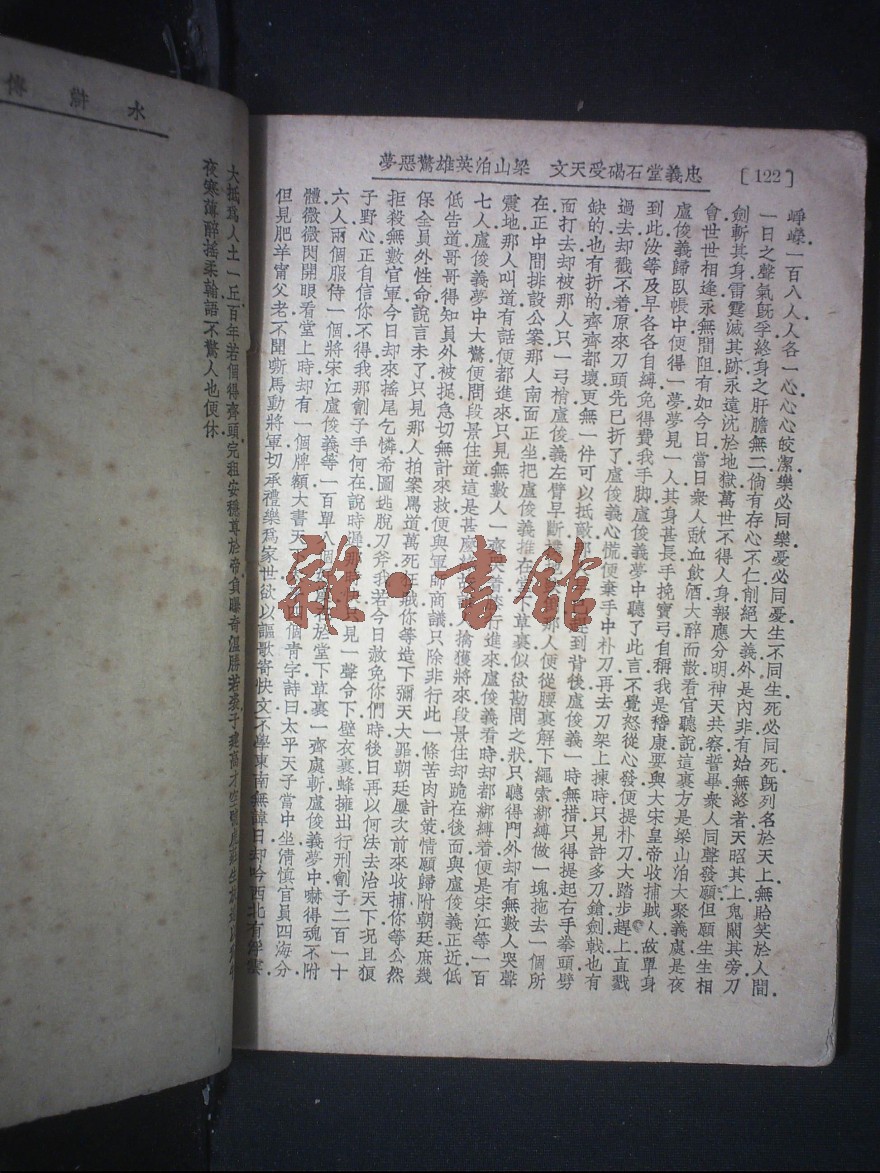 [122]
忠義堂石碣受天文　梁山泊英雄驚惡夢
崢嶸一百八人人各一心心心皎潔樂必同樂憂必同憂生不同生死必同死旣列名於天上無貽笑於人間
一日之聲氣旣孚終身之肝膽無二倘有存心不仁削絕大義外是內非有始無終者天昭其上鬼闞其旁刀
劍斬其身雷霆滅其跡永遠沈於地獄萬世不得人身報應分明神天共察誓畢衆人同聲發願但願生生相
會世世相逢永無間阻有如今日當日衆人歃血飲酒大醉而散看官聽說這裏方是梁山泊大聚義處是夜
盧俊義歸臥帳中便得一夢夢見一人其身甚長手挽寶弓自稱我是嵇康要與大宋皇帝收捕賊人故單身
到此汝等及早各各自縛免得費我手脚盧俊義夢中聽了此言不覺怒從心發便提朴刀大踏步趕上直戳
過去却戳不着原來刀頭先已折了盧俊義心慌便棄手中朴刀再去刀架上揀時只見許多刀鎗劍戟也有
缺的也有折的齊齊都壞更無一件可以抵敵那 到背後盧俊義一時無措只得提起右手拳頭劈
面打去却被那人只一弓梢盧俊義左臂早斷 那人便從腰裏解下繩索綁縛做一塊拖去一個所
在正中間排設公案那人南面正坐把盧俊義推在堂下草裏似欲勘問之狀只聽得門外却有無數人哭聲
震地那人叫道有話便都進來只見無數人一齊 行進來盧俊義看時却都綁縛着便是宋江等一百
七人盧俊義夢中大驚便問段景住道這是甚麽 人擒獲將來段景住却跪在後面與盧俊義正近低
低告道哥哥得知員外被捉急切無計來救便與軍師商議只除非行此一條苦肉計策情願歸附朝廷庶幾
保全員外性命說言未了只見那人拍案罵道萬死 賊你等造下彌天大罪朝廷屢次前來收捕你等公然
拒殺無數官軍今日却來搖尾乞憐希圖逃脫刀斧我若今日赦免你們時後日再以何法去治天下况且狼
子野心正自信你不得我那劊子手何在說時遲那時 見一聲令下壁衣裏蜂擁出行刑劊子二百一十
六人兩個服侍一個將宋江盧俊義等一百單八個 於堂下草裏一齊處斬盧俊義夢中嚇得魂不附
體微微閃開眼看堂上時却有一個牌額大書天 四個靑字詩曰太平天子當中坐淸愼官員四海分
但見肥羊甯父老不聞嘶馬動將軍切承禮樂爲家世欲以謳歌寄快文不學東南無諱日却吟西北有浮雲
水滸傳
大抵爲人土一丘百年若個得齊頭完租安穩尊於帝負曝奇溫勝若裘子建高才
夜寒薄醉搖柔翰語不驚人也便休
雜·書館